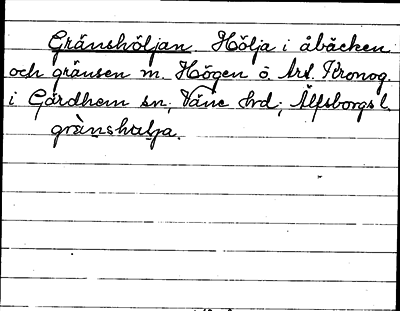 Gränshöljan. Hölja i åbäcken
och gränsen m. Högen o. Arl. Kronog.
i Gärdhem sn, Väne hrd; Älfsborgs l.
grànshulja.